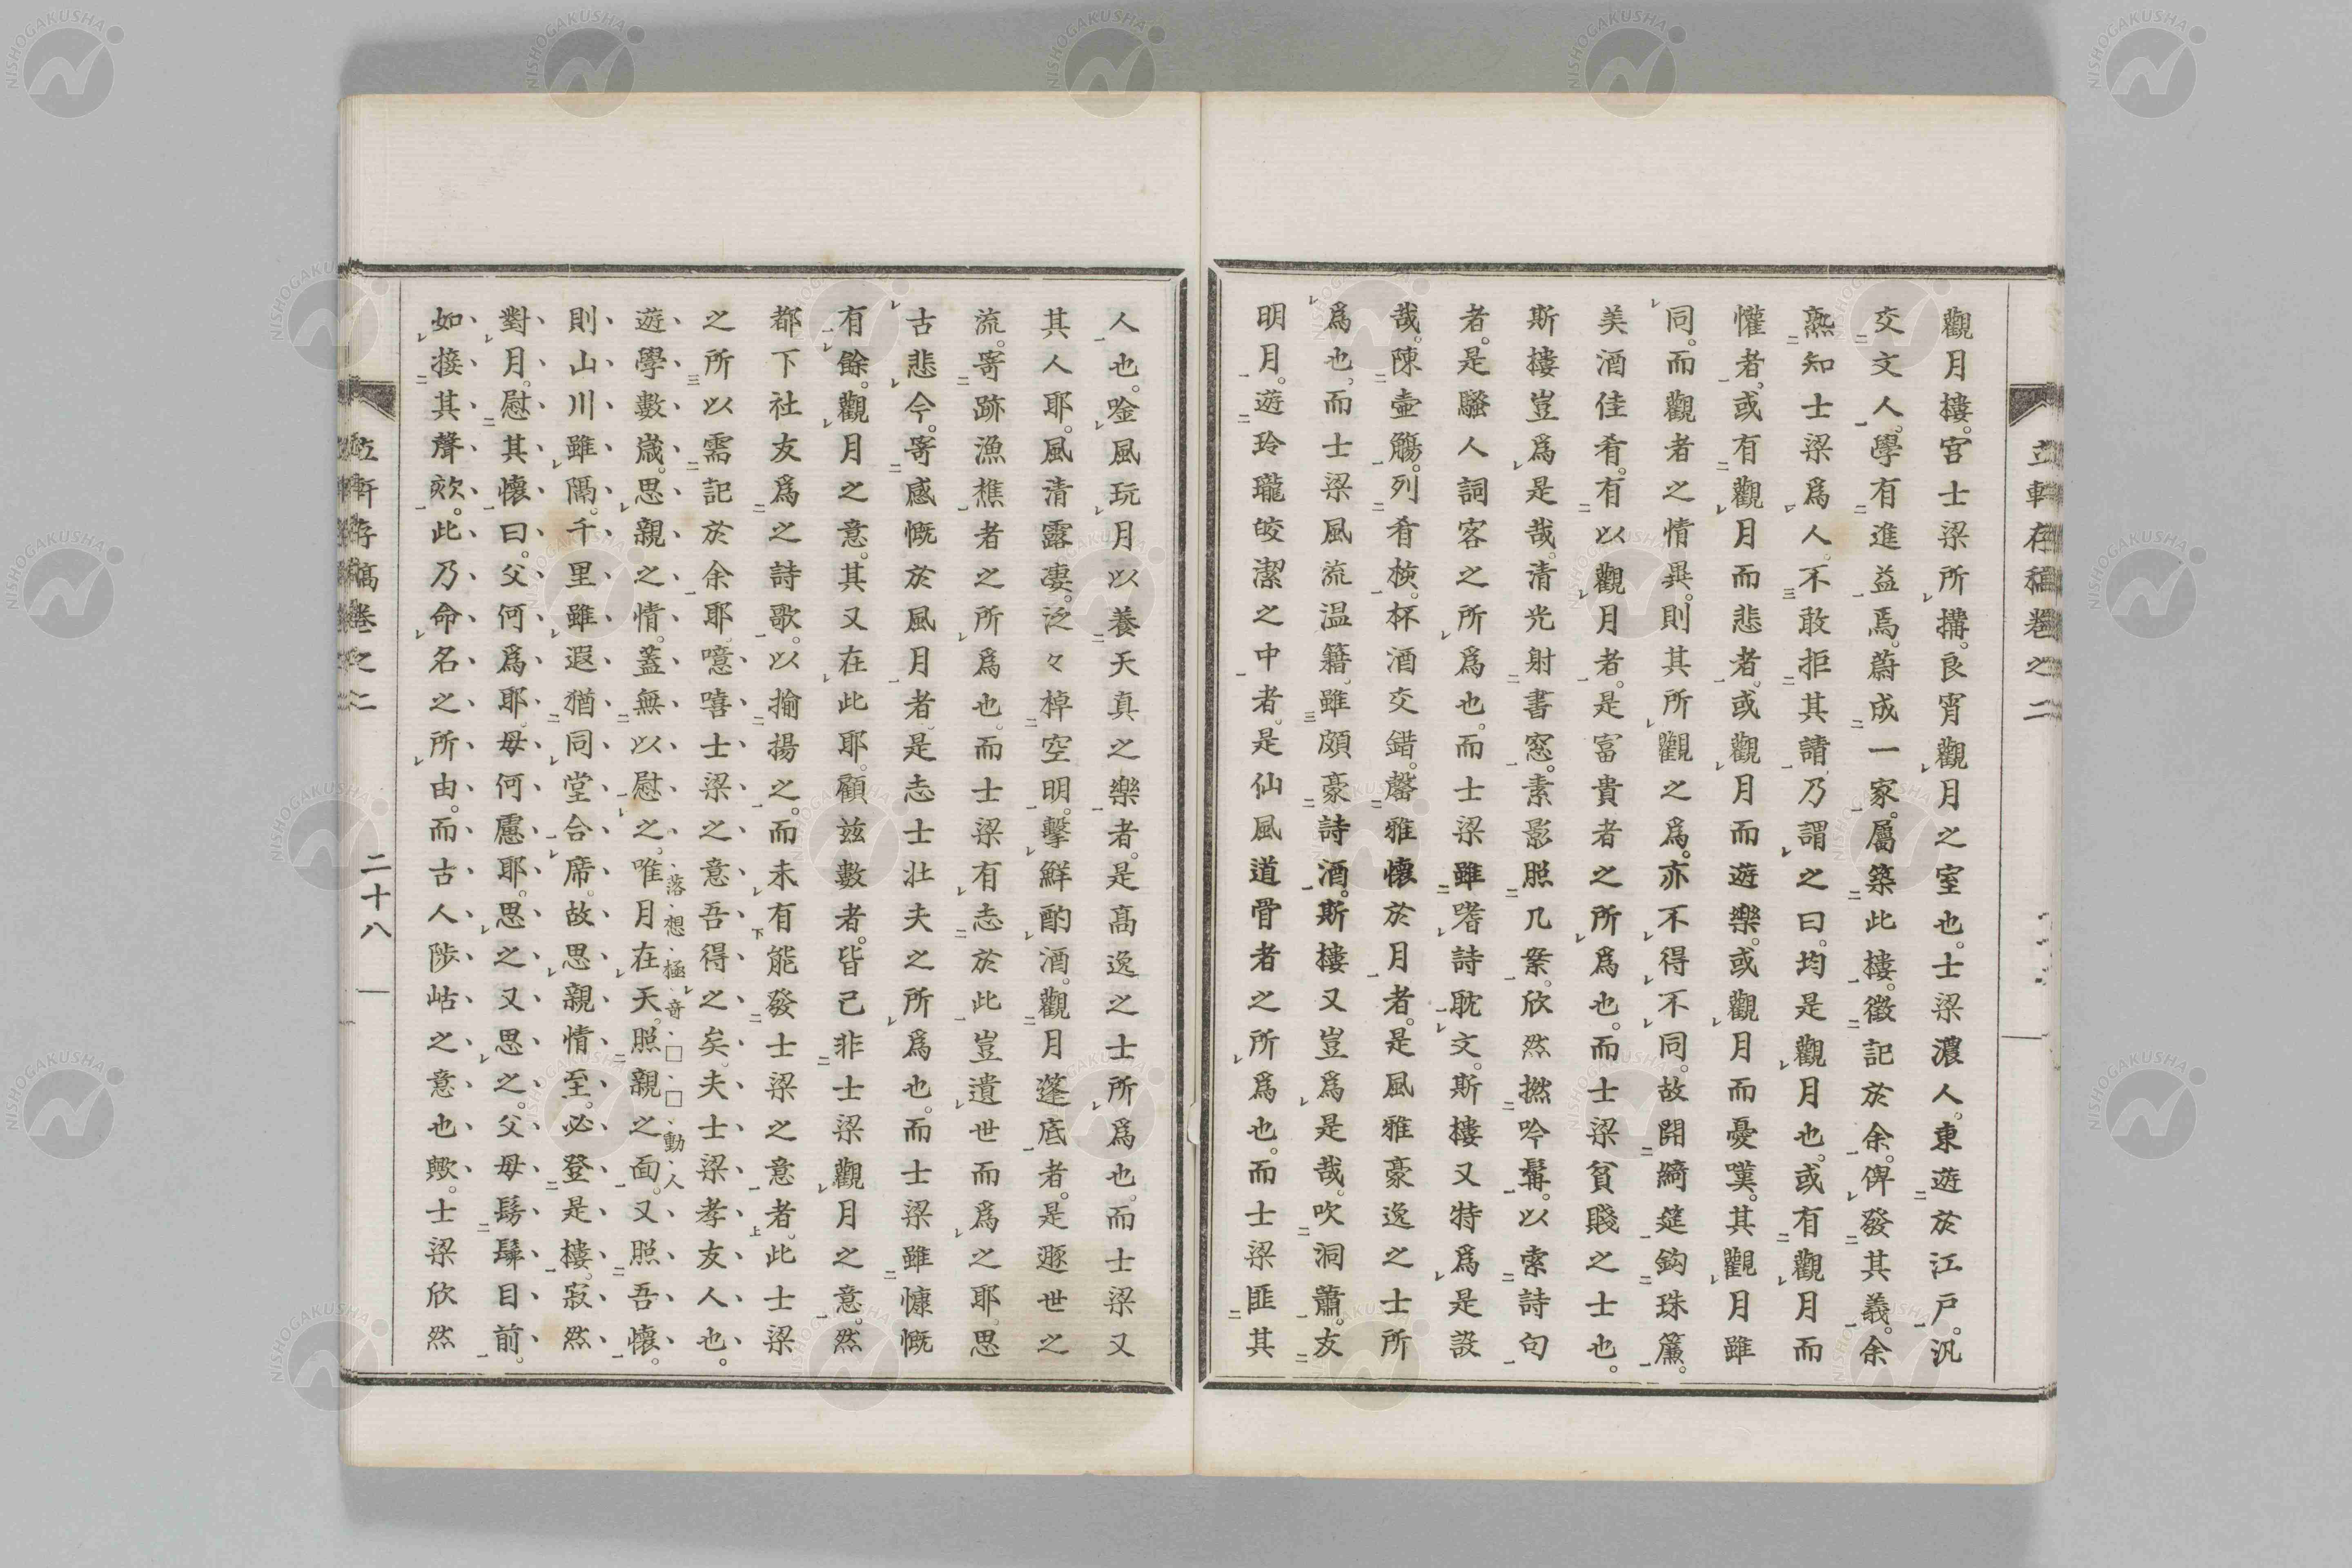 觀月樓。宮士梁所搆。良宵觀月之室也。士梁濃人。東遊於江戸。汎
交文人。學有進益焉。蔚成一家。屬築此樓。徵記於余。俾發其義。余
熟知士梁爲人。不敢拒其請。乃謂之曰。均是觀月也。或有觀月而
懽者。或有觀月而悲者。或觀月而遊樂。或觀月而憂嘆。其觀月雖
同。而觀者之情異。則其所觀之爲。亦不得不同。故開綺筵鈎珠簾。
美酒佳肴。有以觀月者。是富貴者之所爲也。而士梁貧賤之士也。
斯樓豈爲是哉。清光射書窓。素影照几案。欣然撚吟髯。以索詩句
者。是騷人詞客之所爲也。而士梁雖嗜詩耽文。斯樓又特爲是設
哉。陳壺觴。列肴核。杯酒交錯。罄雅懷於月者。是風雅豪逸之士所
爲也。而士梁風流温籍。雖頗豪詩酒。斯樓又豈爲是哉。吹洞簫。友
明月。遊玲瓏皎潔之中者。是仙風道骨者之所爲也。而士梁匪其
人也。唫風玩月以養天真之樂者。是高逸之士所爲也。而士梁又
其人耶。風清露凄。泛々棹空明。擊鮮酌酒。觀月蓬底者。是遯世之
流。寄跡漁樵者之所爲也。而士梁有志於此。豈遺世而爲之耶。思
古悲今。寄感慨於風月者。是志士壯夫之所爲也。而士梁雖慷慨
有餘。觀月之意。其又在此耶。顧玆數者。皆已非士梁觀月之意。然
都下社友爲之詩歌。以揄揚之。而未有能發士梁之意者。此士梁
之所以需記於余耶。噫嘻士梁之意吾得之矣。夫士梁孝友人也。
遊學數歳。思親之情。蓋無以慰之。唯月在天。照親之面。又照吾懷。
落想極奇□□動人
則山川雖隔。千里雖遐。猶同堂合席。故思親情至。必登是樓。寂然
對月。慰其懷曰。父何爲耶。母何慮耶。思之又思之。父母髣髴目前。
如接其聲欬。此乃命名之所由。而古人陟岵之意也歟。士梁欣然
二十八